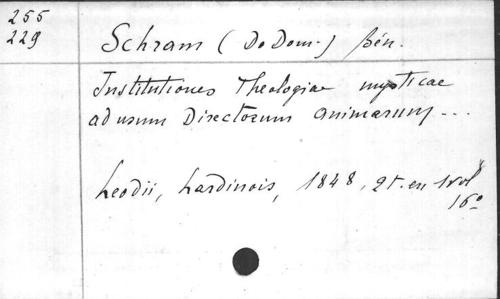 255
229
Schram (Do Dom.) Bén.
Institutiones Theologiae mysticae
ad usum Directorum animarum ...
Leodii, Lardinois, 1848, 2 t. en 1 vol
16°